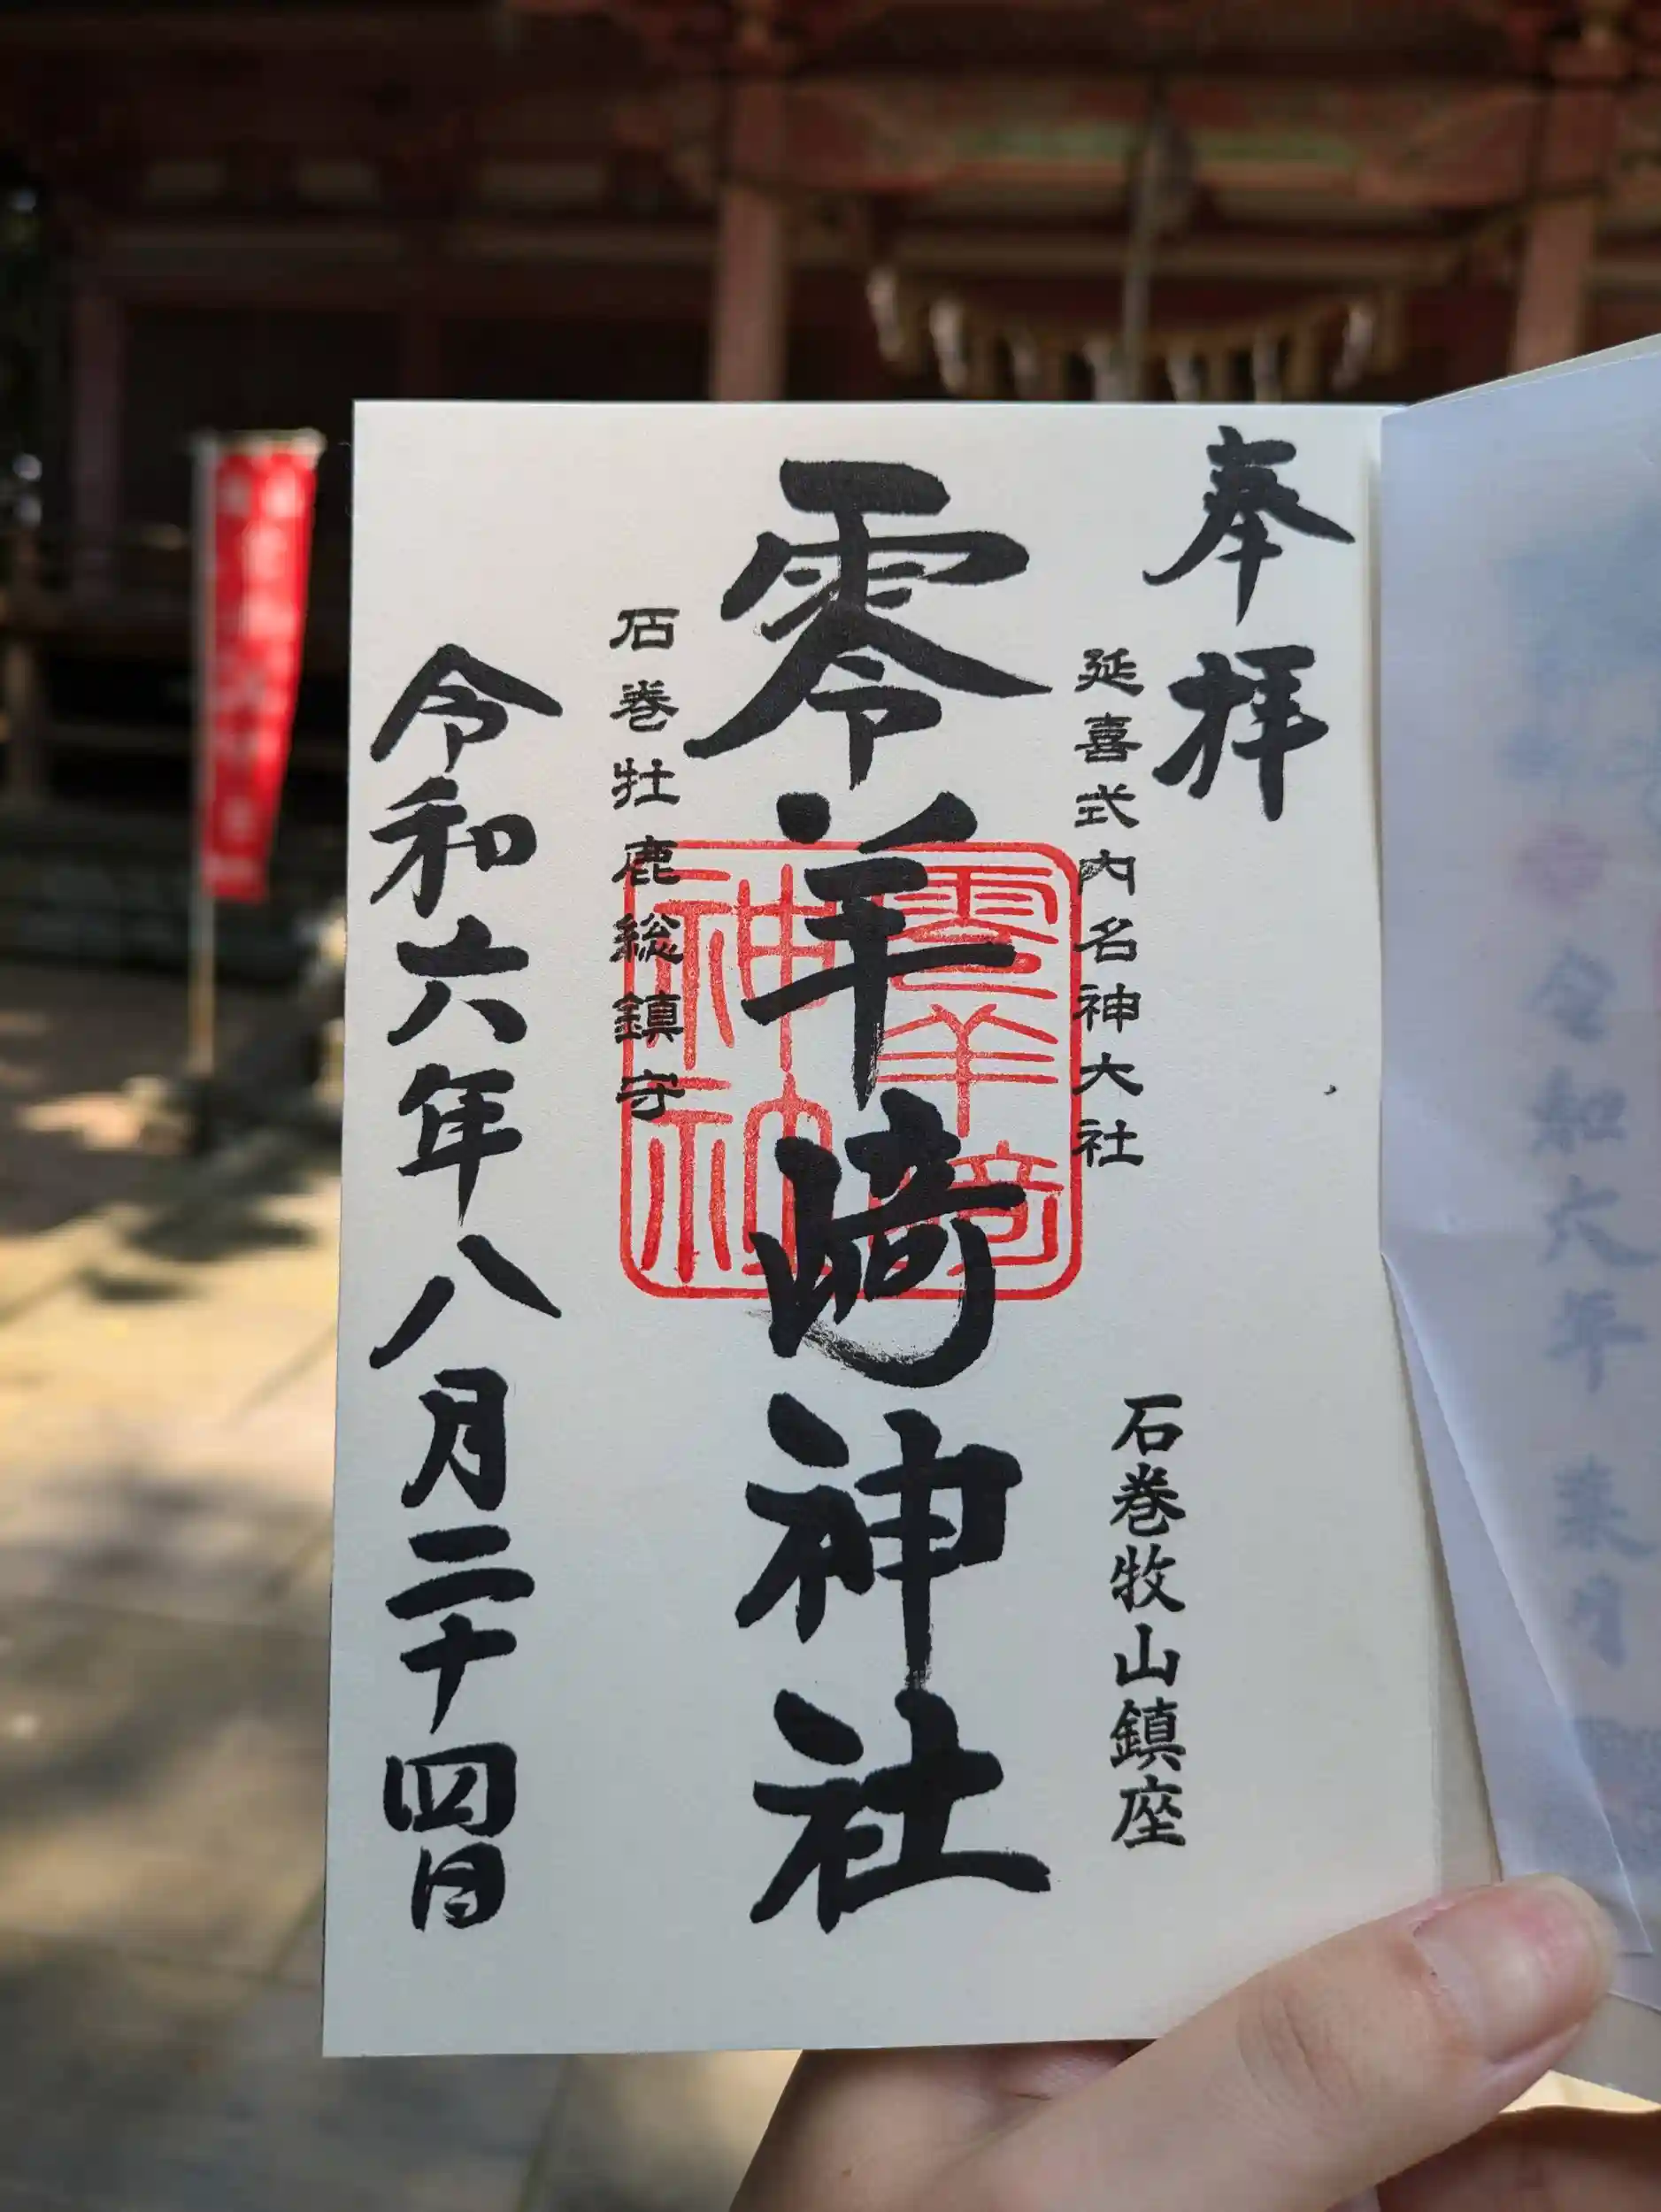 奉拝
延喜式内名神大社
石巻牧山鎮座
零羊崎神社
零羊崎
神社
石巻牡鹿総鎮守
令和六年八月二十四日